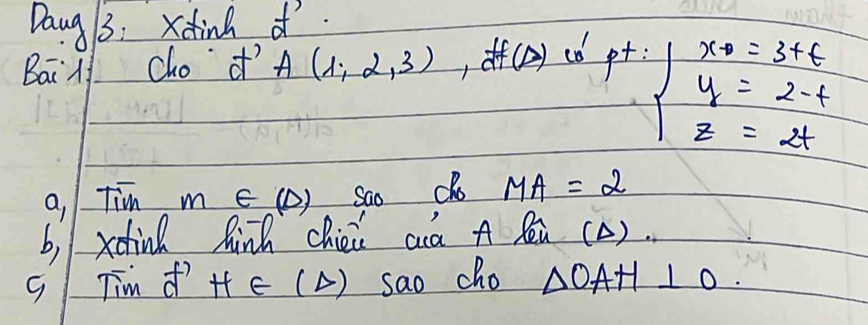 Dạng 3: Xđịnh đ'.
Bài 1: Cho đ' A (1; 2, 3), đt(Δ) có pt: { x = 3+t
y = 2-t
z = 2t
a, Tìm m ∈ (Δ) sao cho MA = 2
b, xđịnh hình chiếu của A lên (Δ).
c, Tìm đ' H ∈ (Δ) sao cho ΔOAH ⊥ O.